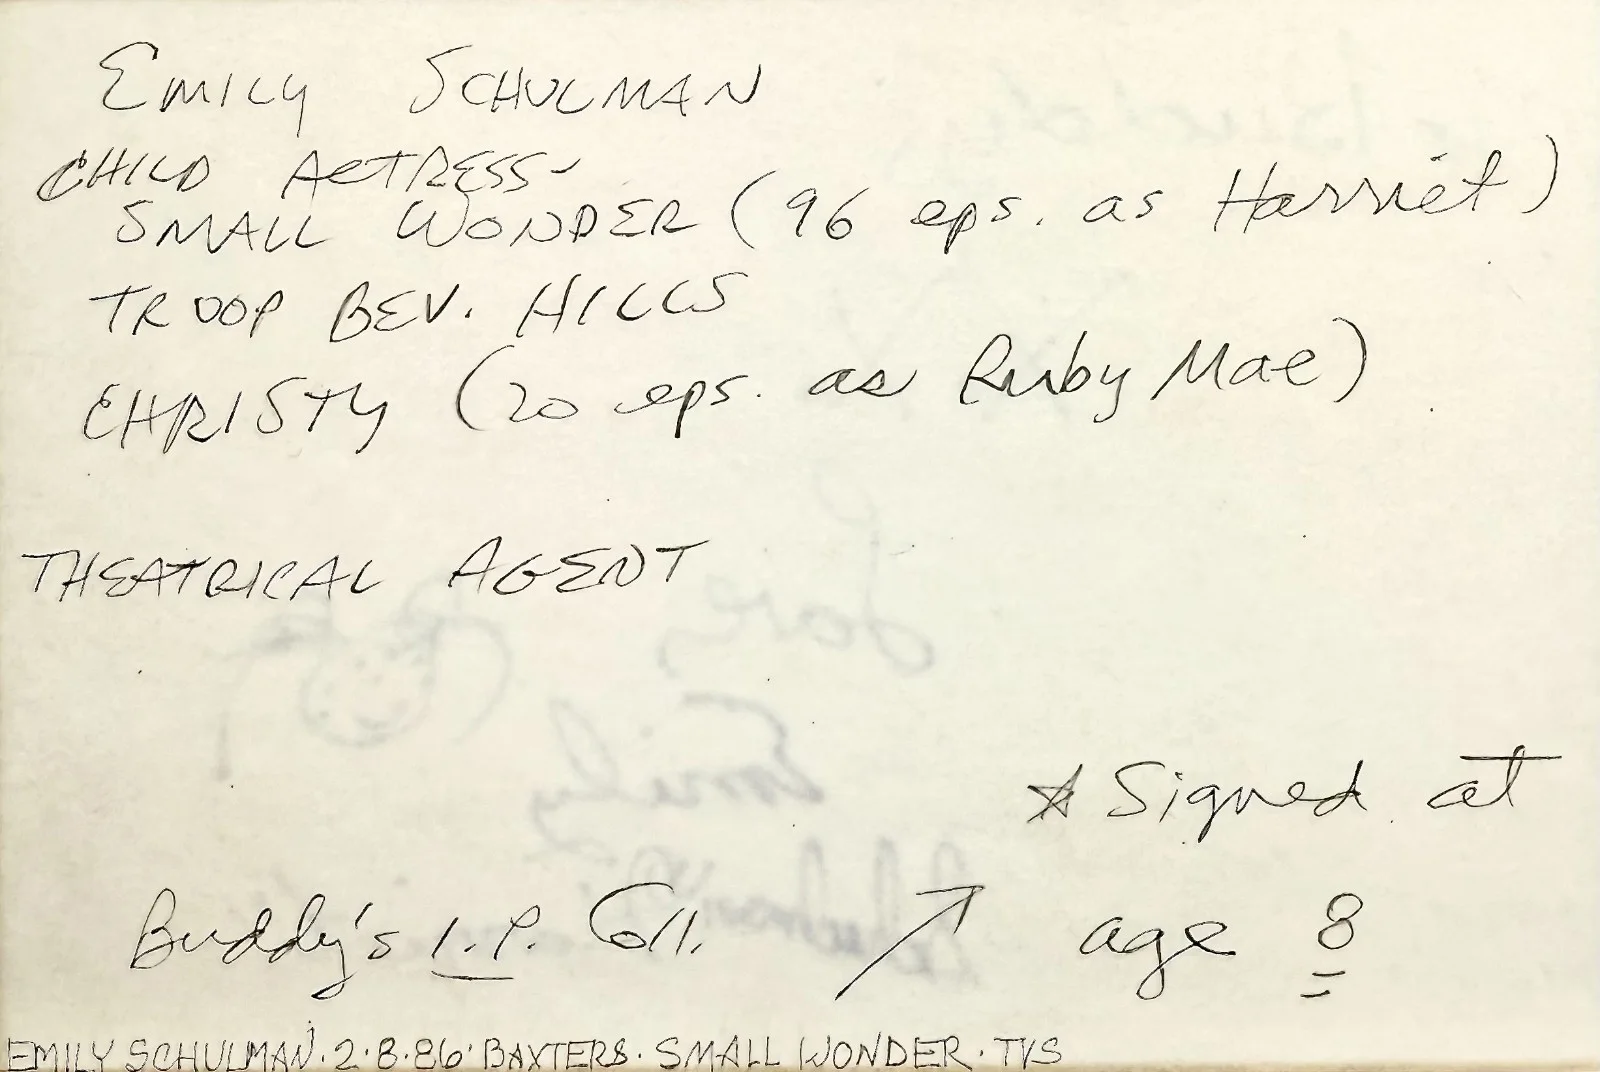 EMILY SCHULMAN
CHILD ACTRESS-
SMALL WONDER (96 eps. as Harriet)
TROOP BEV. HILLS
CHRISTY (20 eps. as Ruby Mae)
THEATRICAL AGENT
☆ Signed at
age 8
Buddy's I.P. Coll.
EMILY SCHULMAN · 2·8·86 · BAXTERS · SMALL WONDER · TVS
Love
Emily
Schulman